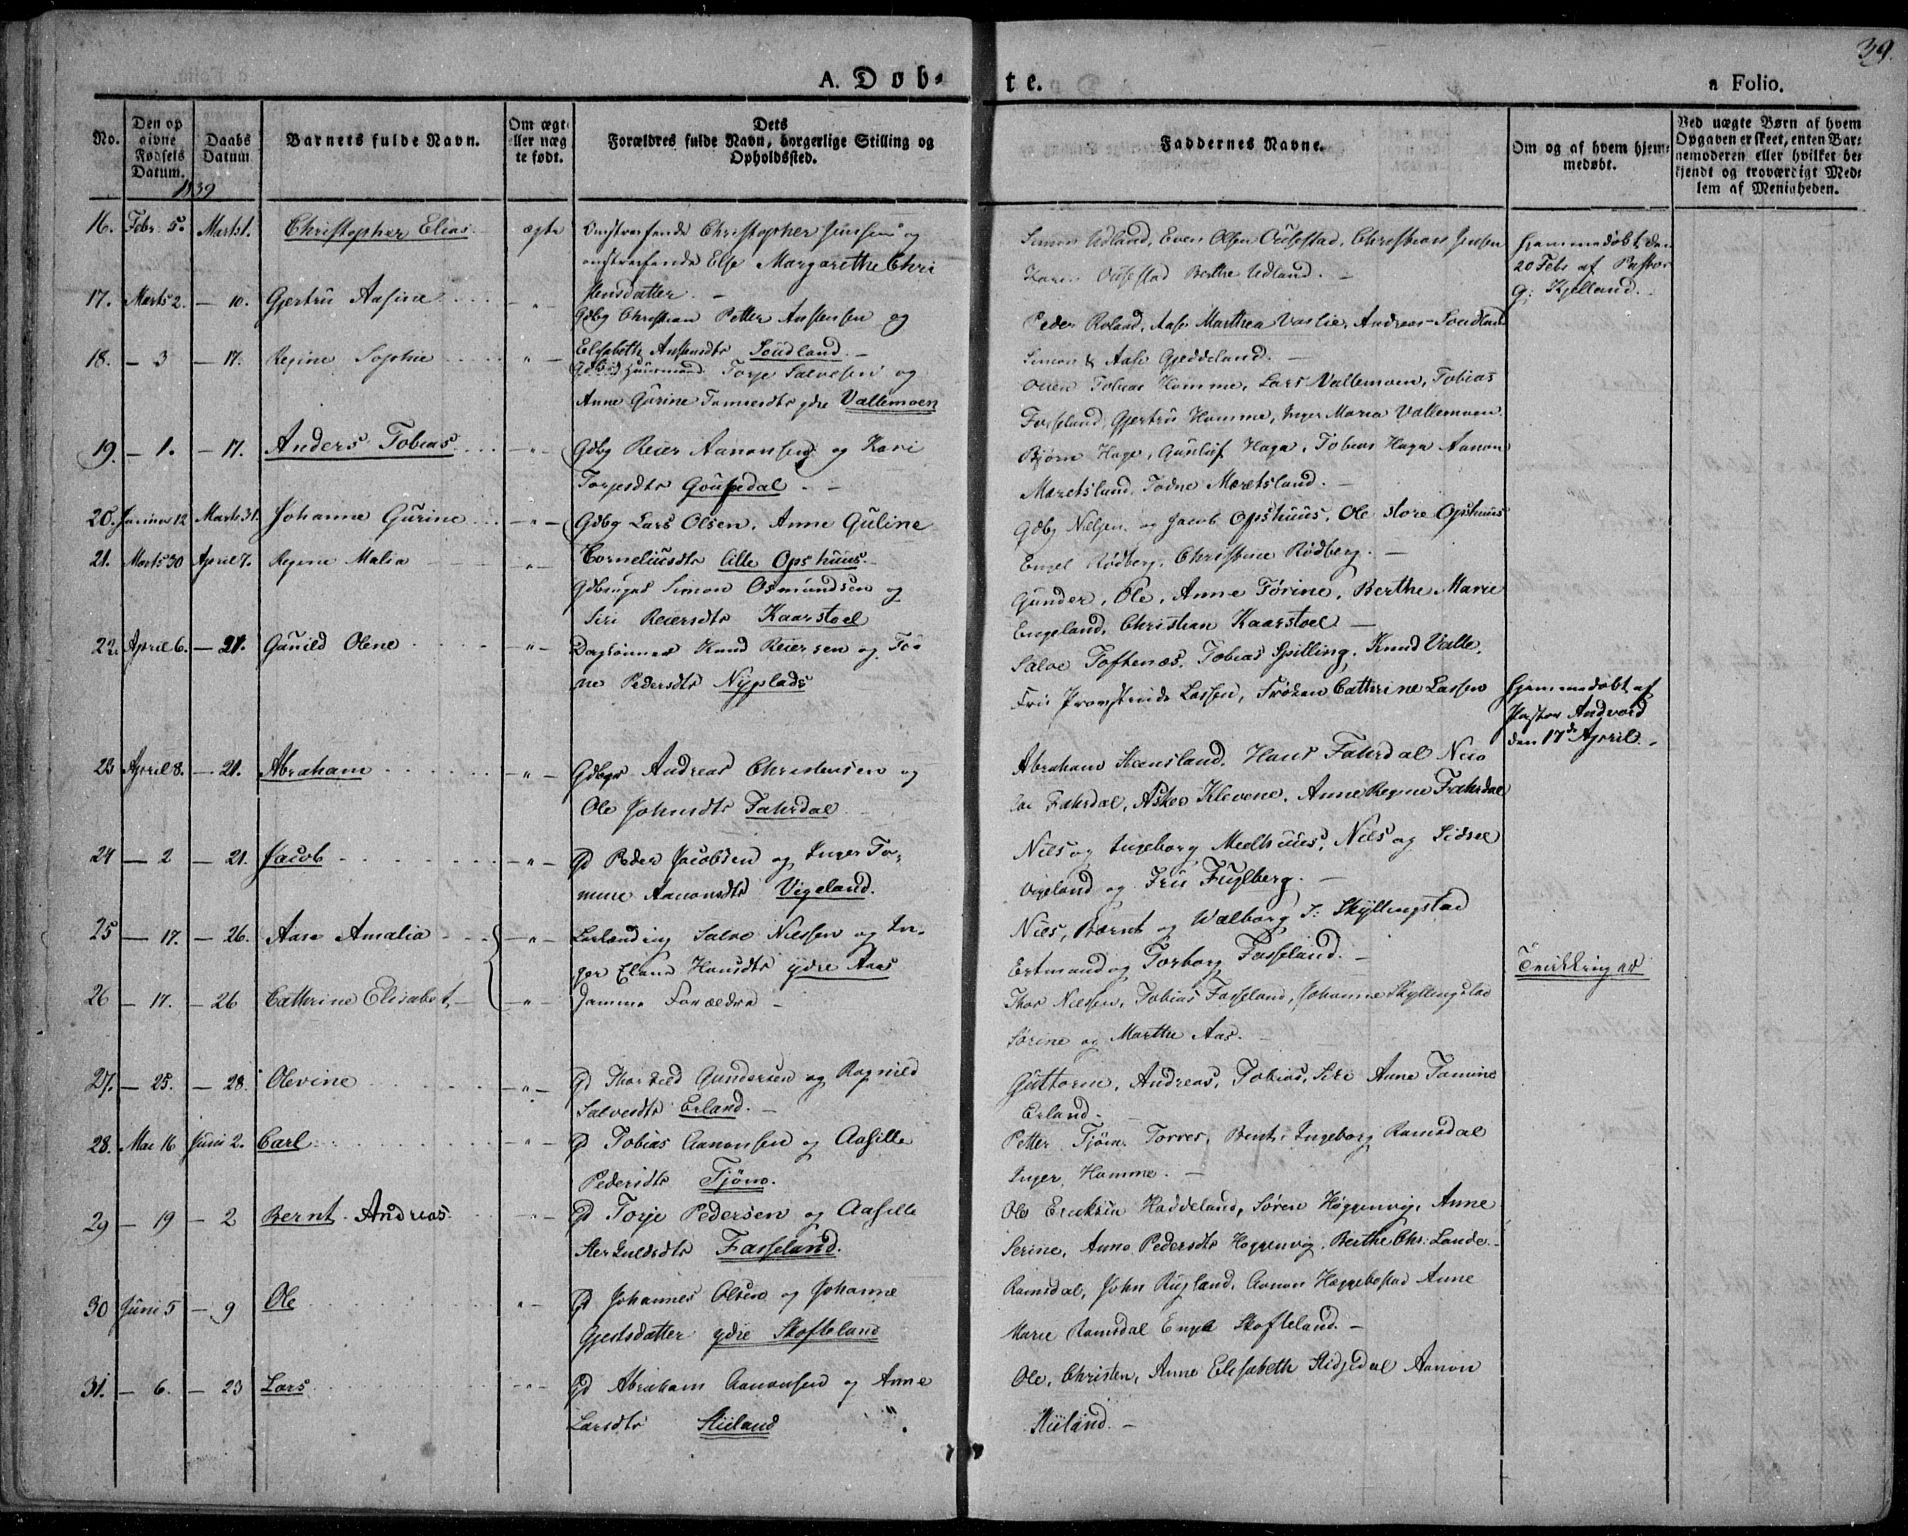 39.
A. Døb-
te.
a Folio.
No.
Den op
givne
Fødsels
Datum.
Daabs
Datum.
Barnets fulde Navn.
Om ægt-
eller uæg
te født.
Dets
Forældres fulde Navn, borgerlige Stilling og
Opholdssted.
Faddernes Navne.
Om og af hvem hjem-
medøbt.
Ved uægte Børn af hvem
Opgaven er skeet, enten Bar-
nemoderen eller hvilket be-
kjendt og troværdigt Med-
lem af Menigheden.
1839
16. Febr 5. Marts 1. Christopher Elias ægte Omstreifende Christopher Jensen og
omstreifende Else Margarethe Chri
stensdatter. -
Simon Udland, Even Olsen Christian Jensen
Udland. -
Hjemmedøbt den
20 Febr af Pastor
G: Kjelland.
17. Marts 2. - 10. Gjertru Aasine - " - Gdbg Christian Petter Ansensen og
Elisabeth Ansensdtr Soudland. -
Peder Roland, Aase Marthea Andreas Soudland
Simon & Aase Gjeddeland. -
18. - 3 - 17. Regine Sophie - " - Huusmand Torje Salvesen og
Anne Gurine ydre Vallemoen
Tobias Homme, Lars Vallemoen, Tobias
Fasseland, Gjertru Homme, Inger Maria Vallemoen
19. - 1. - 17. Anders Tobias - " - Gdbg Reier Aanonsen og Kari
Torjesdtr Goussedal - -
Bjørn Haga, Gunluf Haga, Tobias Haga Aanon
Moretsland, Todne Moretsland. -
20. Januar 12 Marts 31. Johanne Gurine - " - Gdbg Lars Olsen, Anne Guline
Corneliusdtr lille Opshuus. -
Gdbg Nilsen og Jacob Opshuus, Ole store Opshuus
Engel Rødberg, Christine Rødberg. -
21. Marts 30 April 7. Regine Malia - " - Simon Osmundsen og
Siri Reiersdtr Kaarstoel
Gunder, Ole, Anne Tørine, Berthe Marie
Engeland, Christian Kaarstoel -
22. April 6. - 21. Gunild Olene - " - Knud Reiersen og To-
ne Pedersdtr Nyplads
Salve Toftenæs, Tobias Spilling, Knud Valle,
Fru Provstinde Lassen, Frøken Cathrine Lassen
Hjemmedøbt af
Pastor Andvord
den 17de April.
23 April 8. - 21. Abraham - " - Andreas Christensen og
Ole Johnsdtr Fahrdal
Abraham Hans Fahrdal
Fahrdal, Klevene, Anne Regine Fahrdal
24 - 2 - 21. Jacob - " - G Peder Jacobsen og Inger To-
mine Aanonsdtr Vigeland.
Niels og Ingeborg Medhuus, Niels og Sidsel
Vigeland og Fru Fuglberg. -
25 - 17. - 26. Aase Amalia - " - Salve Nielsen og In-
ger Hansdtr ydre Aas
Niels, Bærnt og Walborg Skyllingstad
og Torborg Fasseland. -
Tvillinger
26 - 17. - 26 Cathrine Elisabet, - " - Samme Forældre -
Thor Nielsen, Tobias Fasseland, Johanne Skyllingstad
Sørine og Marthe Aas. -
27. - 25. - 28. Olevine - " - G Gundersen og Ragnild
Salvesdtr Erland. -
Guttorm, Andreas, Tobias, Siri Anne Tomine
Erland. -
28. Mai 16 Juni 2. Carl - " - G Tobias Aanonsen og Aasille
Pedersdtr Tjøm.
Petter Tjøm, Torres, Bent, Ingeborg Ramsdal
Inger Homme. -
29 - 19 - 2 Bernt Andreas - " - G Torje Pedersen og Aasille
Fasseland.
Ole Eriksen Haddeland, Søren Høggenvig, Anne
Serine, Anne Pedersdtr Høggenvig, Berthe Chr: Lande
30 Juni 5 - 9 Ole " - G Johannes Olsen og Johanne
Gjertsdatter ydre Skofteland
Ramsdal, John Rugland, Aanon Høggebostad Anne
Marie Ramsdal Skofteland. -
31. - 6. - 23 Lars - " - G Abraham Aanonsen og Anne
Larsdtr Stiiland
Ole, Christen, Anne Elisabeth Aanon
Stiiland. -